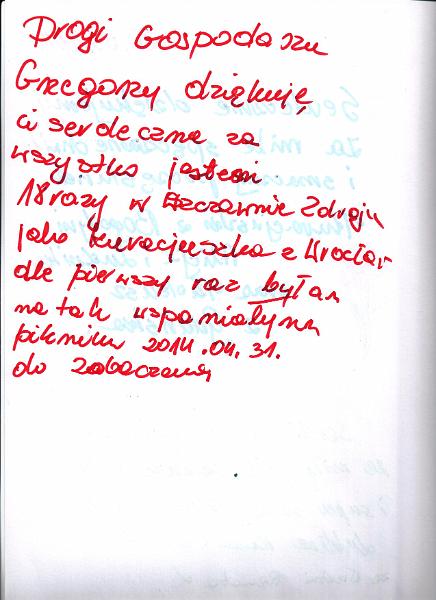 Drogi Gospodazu
Grzegorzy dziękuję
ci serdeczne za
wszystko jestem
18 razy w Szczawnie Zdroju
jako kuracjuszka z Wrocław
dle pierwszy raz byłam
na tak wspaniałym
pikniku 2014.04.31.
do zobaczenia